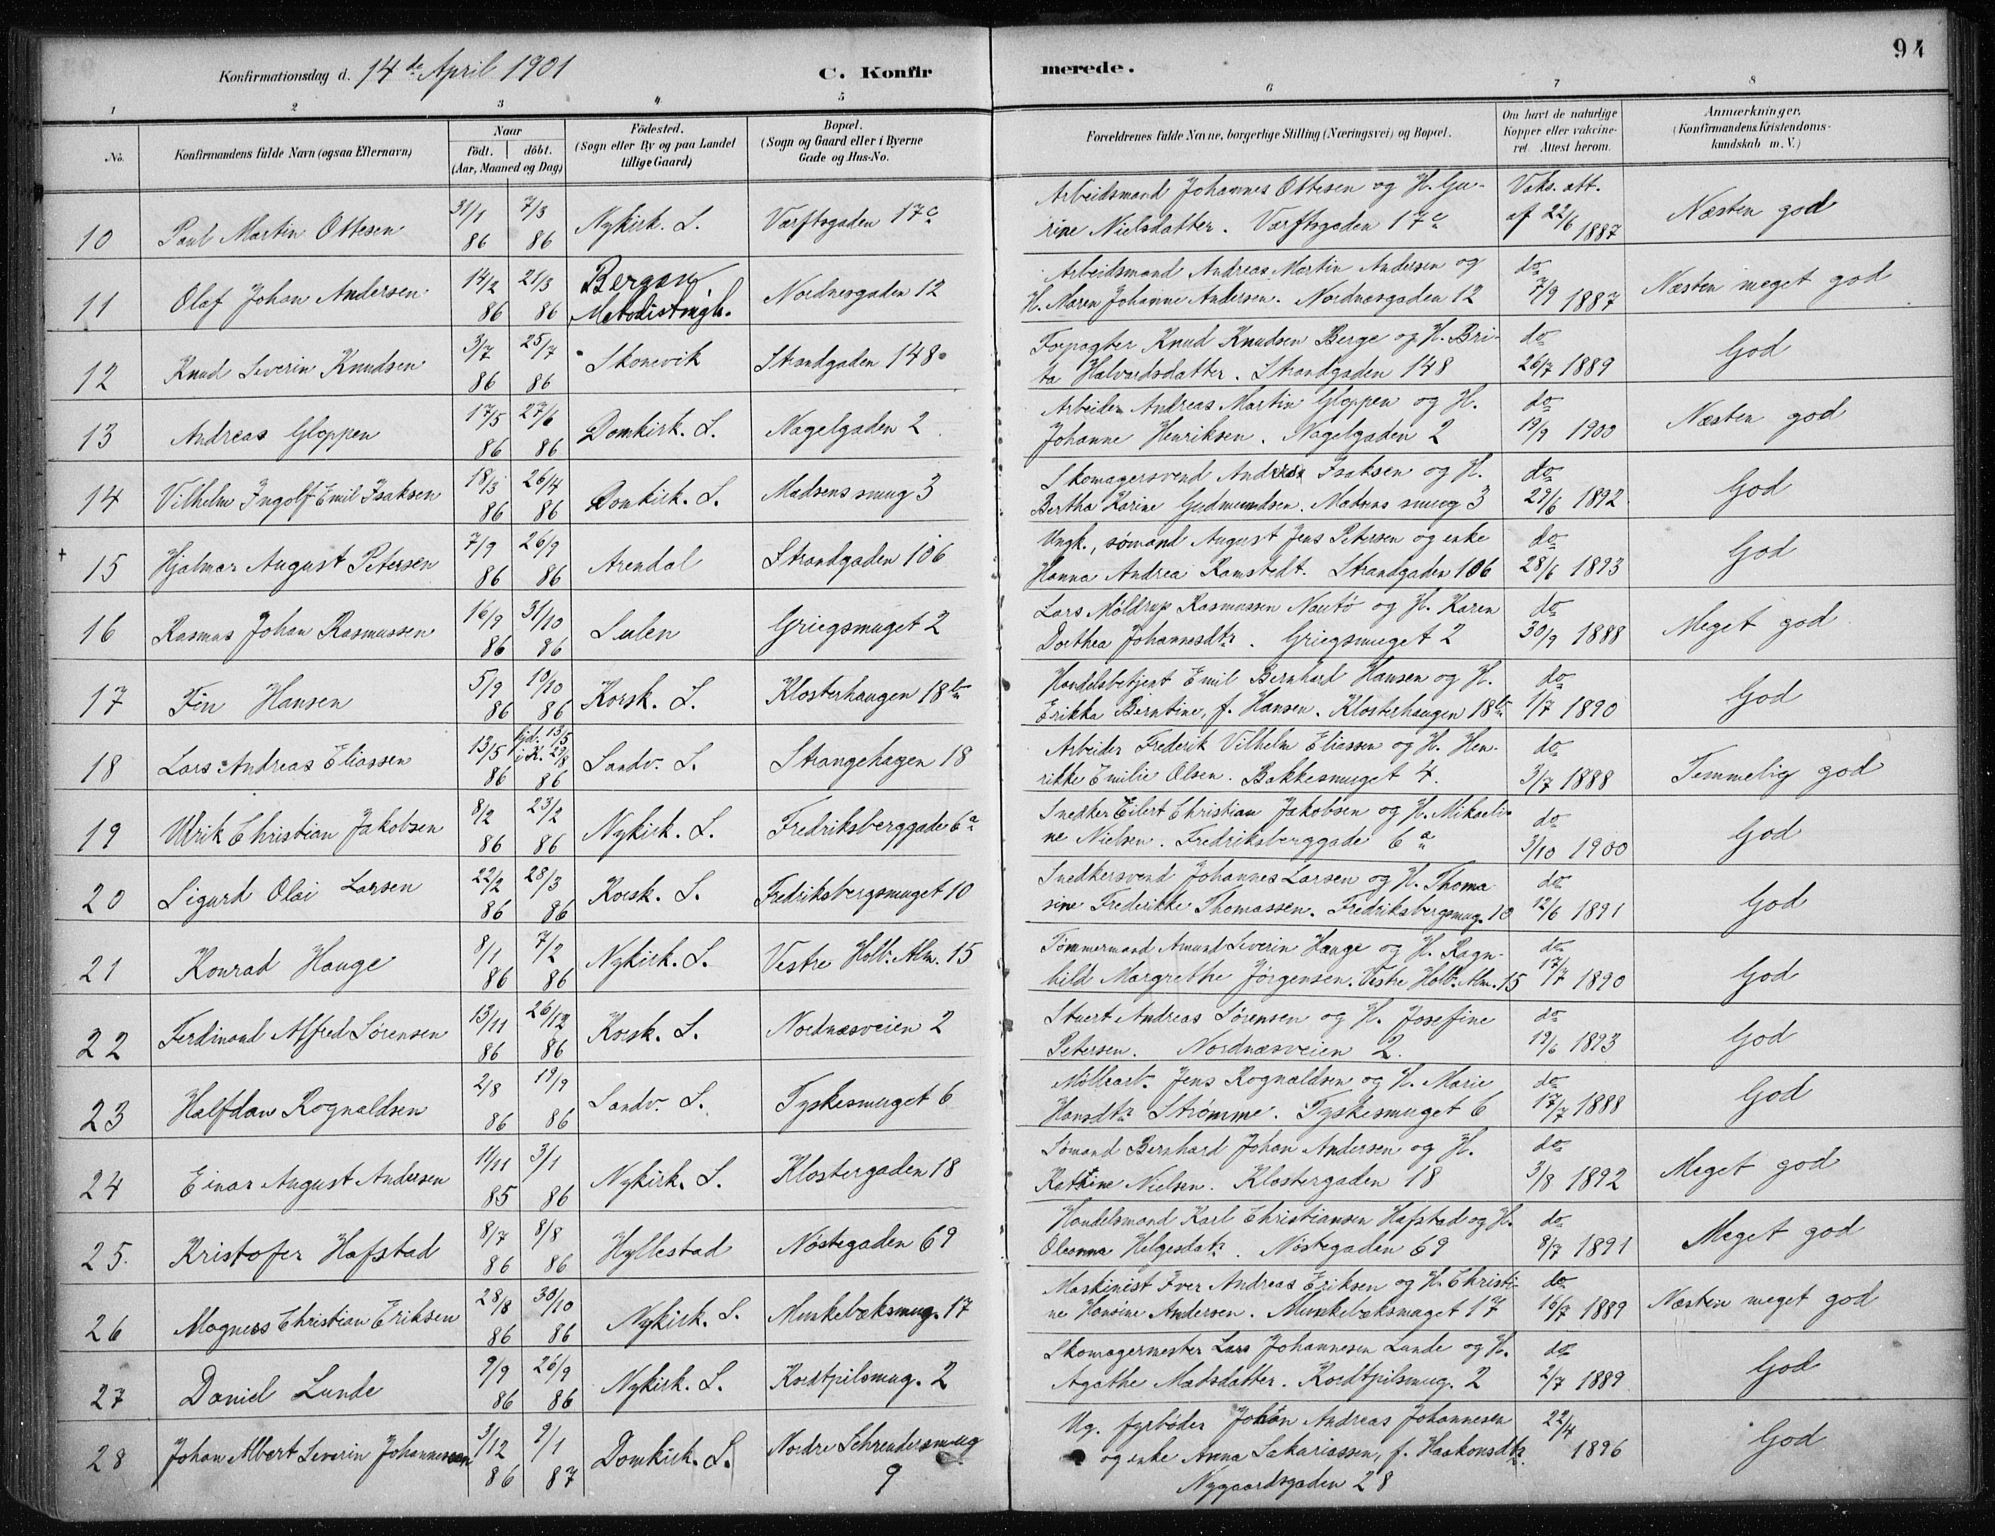 94
Konfirmationsdag d. 14de April 1901
C. Konfir merede.
1 2 3 4 5 6 7 8
No. Konfirmandens fulde Navn (ogsaa Efternavn) Naar Födt. döbt. (Aar, Maaned og Dag) Födested. (Sogn eller By og paa Landet tillige Gaard) Bopæl. (Sogn og Gaard eller i Byerne Gade og Hus-No. Forældrenes fulde Navne, borgerlige Stilling (Næringsvei) og Bopæl. Om havt de naturlige Kopper eller vakcineret. Attest herom. Anmærkninger. (Konfirmandens Kristendomskundskab m. V.)
10 Paul Martin Ottesen 31/1 86 7/3 86 Nykirk. S. Værftsgaden 17c Arbeidsmand Johannes Ottesen og H. Gu-
rine Nielsdatter. Værftsgaden 17c Vaks. att. af 22/6 1887 Næsten god
11 Olaf Johan Andersen 14/2 86 21/3 86 Bergen. Metodistmgh. Nordnesgaden 12 Arbeidsmand Andreas Martin Andersen og
H. Maren Johanne Andersen. Nordnæsgaden 12 do 7/9 1887 Næsten meget god
12 Knud Severin Knudsen 3/7 86 25/7 86 Skonevik Strandgaden 148 Forpagter Knud Knudsen Berge og H. Bri-
ta Halvordsdatter. Strandgaden 148 do 26/7 1889 God
13 Andreas Gloppen 17/5 86 27/6 86 Domkirk. S. Nagelgaden 2 Arbeider Andreas Martin Gloppen og H.
Johanne Henriksen. Nagelgaden 2 do 19/9 1900 Næsten god
14 Vilhelm Ingolf Emil Isaksen 18/3 86 26/4 86 Domkirk. S. Madsens smug 3 Skomagersvend Andreas Isaksen og H.
Bertha Karine Gudmundsen. Madsens smug 3 do 29/6 1892 God
+ 15 Hjalmar August Petersen 7/9 86 26/9 86 Arendal Strandgaden 106 Ungk., sømand August Jens Petersen og enke
Hanna Andrea Ramstedt. Strandgaden 106 do 28/6 1893 God
16 Rasmus Johan Rasmussen 16/9 86 31/10 86 Sulen Griegsmuget 2 Lars Møldrup Rasmussen Nautø og H. Karen
Dorthea Johannesdtr. Griegsmuget 2 do 30/9 1888 Meget god
17 Fin Hansen 5/9 86 19/10 86 Korsk. S. Klosterhaugen 18b Handelsbetjent Emil Bernhard Hansen og H.
Erikka Berntine, f. Hansen. Klosterhaugen 18b do 1/7 1890 God
18 Lars Andreas Eliassen 13/5 86 hjd. 13/5 i K. 29/8 86 Sandv. S. Strangehagen 18 Arbeider Frederik Vilhelm Eliassen og H. Hen-
rikke Emilie Olsen. Bakkesmuget 4. do 3/7 1888 Temmelig god
19 Ulrik Christian Jakobsen 8/2 86 23/2 86 Nykirk. S. Fredriksberggade 6a Snedker Eilert Christian Jakobsen og H. Mikaeli-
ne Nielsen. Fredriksberggade 6a do 3/10 1900 God
20 Sigurd Olai Larsen 22/2 86 28/3 86 Korsk. S. Fredriksbergsmuget 10 Snedkersvend Johannes Larsen og H. Thoma
sine Frederikke Thomassen. Fredriksbergsmug. 10 do 12/6 1891 God
21 Konrad Hauge 8/1 86 7/2 86 Nykirk. S. Vestre Holb. Alm. 15 Tømmermand Amund Severin Hauge og H. Ragn-
hild Margrethe Jørgensen. Vestre Holb. Alm. 15 do 17/7 1890 God
22 Ferdinand Alfred Sørensen 13/11 86 26/12 86 Korsk. S. Nordnæsveien 2 Stuert Andreas Sørensen og H. Josefine
Petersen. Nordnæsveien 2. do 19/6 1893 God
23 Halfdan Rognaldsen 2/8 86 19/9 86 Sandv. S. Tyskesmuget 6 Møllearb. Jens Rognaldsen og H. Marie
Hansdtr Strømme. Tyskesmuget 6 do 17/7 1888 God
24 Einar August Andersen 11/11 85 3/1 86 Nykirk. S. Klostergaden 18 Sømand Bernhard Johan Andersen og H.
Kathine Nielsen. Klostergaden 18 do 3/8 1892 Meget god
25. Kristofer Hafstad 8/7 86 8/8 86 Hyllestad Nøstegaden 69 Handelsmand Karl Christiansen Hafstad og H.
Oleanna Helgesdtr. Nøstegaden 69 do 8/7 1891 Meget god
26 Magnus Christian Eriksen 28/8 86 30/10 86 Nykirk. S. Munkebæksmug. 17 Maskinist Iver Andreas Eriksen og H. Christi-
ne Hansine Andersen. Munkebæksmuget 17 do 16/7 1889 Næsten meget god
27 Daniel Lunde 9/9 86 26/9 86 Nykirk. S. Kordtpilsmug. 2 Skomagermester Lars Johannesen Lunde og H.
Agathe Madsdatter. Kordtpilsmug. 2 do 2/7 1889 God
28 Johan Albert Severin Johannessen 3/12 86 9/1 87 Domkirk. S. Nordre Schreudersmug 9 Ug. fyrbøder Johan Andreas Johannesen
og enke Anna Sakariassen, f. Haakonsdtr.
Nygaardsgaden 28 22/4 1896 God